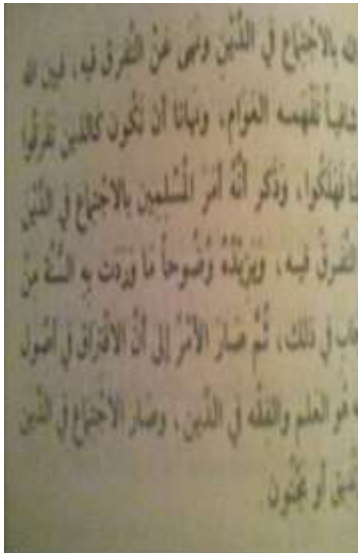 الله بالاجتماع في الدين ونهى عن التفرق فيه، فبين الله
شافياً تفهمه العوام، ونهانا أن نكون كالذين تفرقوا
فهلكوا، وذكر أنه أمر المسلمين بالاجتماع في الدين
التفرق فيه، ويزيده وضوحاً ما وردت به السنة من
في ذلك، ثم صار الأمر إلى أن الافتراق في أصول
هو العلم والفقه في الدين، وصار الاجتماع في الدين
أو مجنون